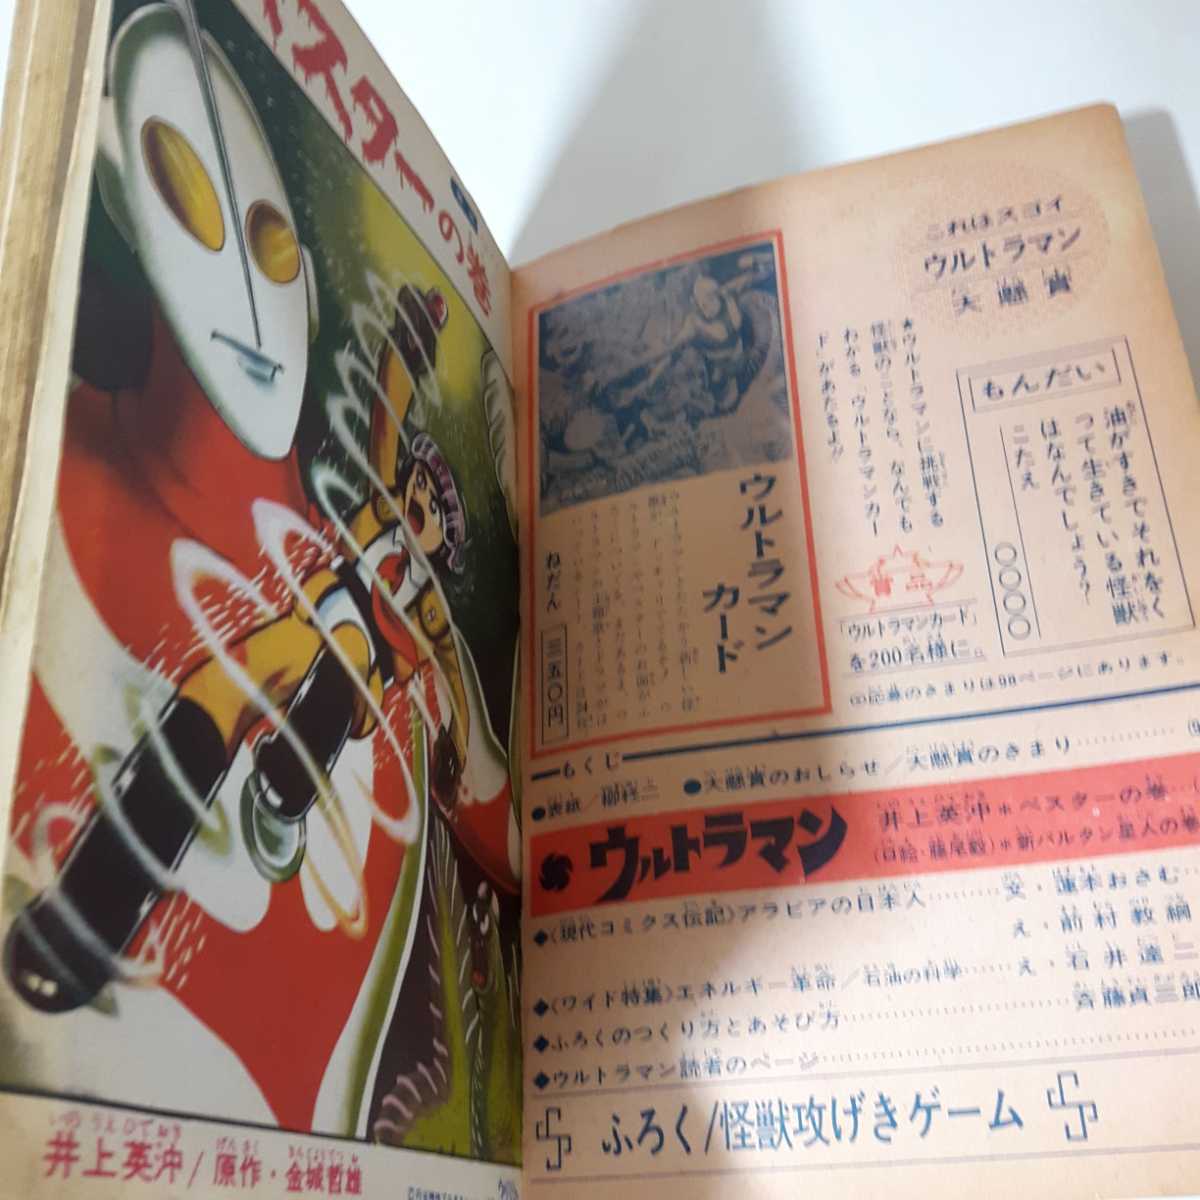 スターの巻
井上英沖/原作・金城哲雄
いのうえひでおき
げんさく
きんじょうてつお
これはスゴイ
ウルトラマン
大懸賞
もんだい
油がすきでそれをなく
って生きている怪獣
はなんでしょう?
こたえ
○○○○
★ウルトラマンに挑戦する
怪獣のことなら、なんでも
わかる「ウルトラマンカー
ド」があたるよ!!
賞品
「ウルトラマンカード」
を200名様に。
ウルトラマン
カード
ねだん 三五〇円
◎応募のきまりは98ページにあります。
もくじ
●表紙/柳柊二
●大懸賞のおしらせ/大懸賞のきまり
ウルトラマン
井上英沖*ペスターの巻
(口絵・藤尾毅)*新バルタン星人の巻
◆〈現代コミクス伝記〉アラビアの日本人 文・蓮木おさむ
え・前村教綱
◆〈ワイド特集〉エネルギー革命/石油の科学 え・石井達二
◆ふろくのつくり方とあそび方 斉藤貞三郎
◆ウルトラマン読者のページ
ふろく/怪獣攻げきゲーム